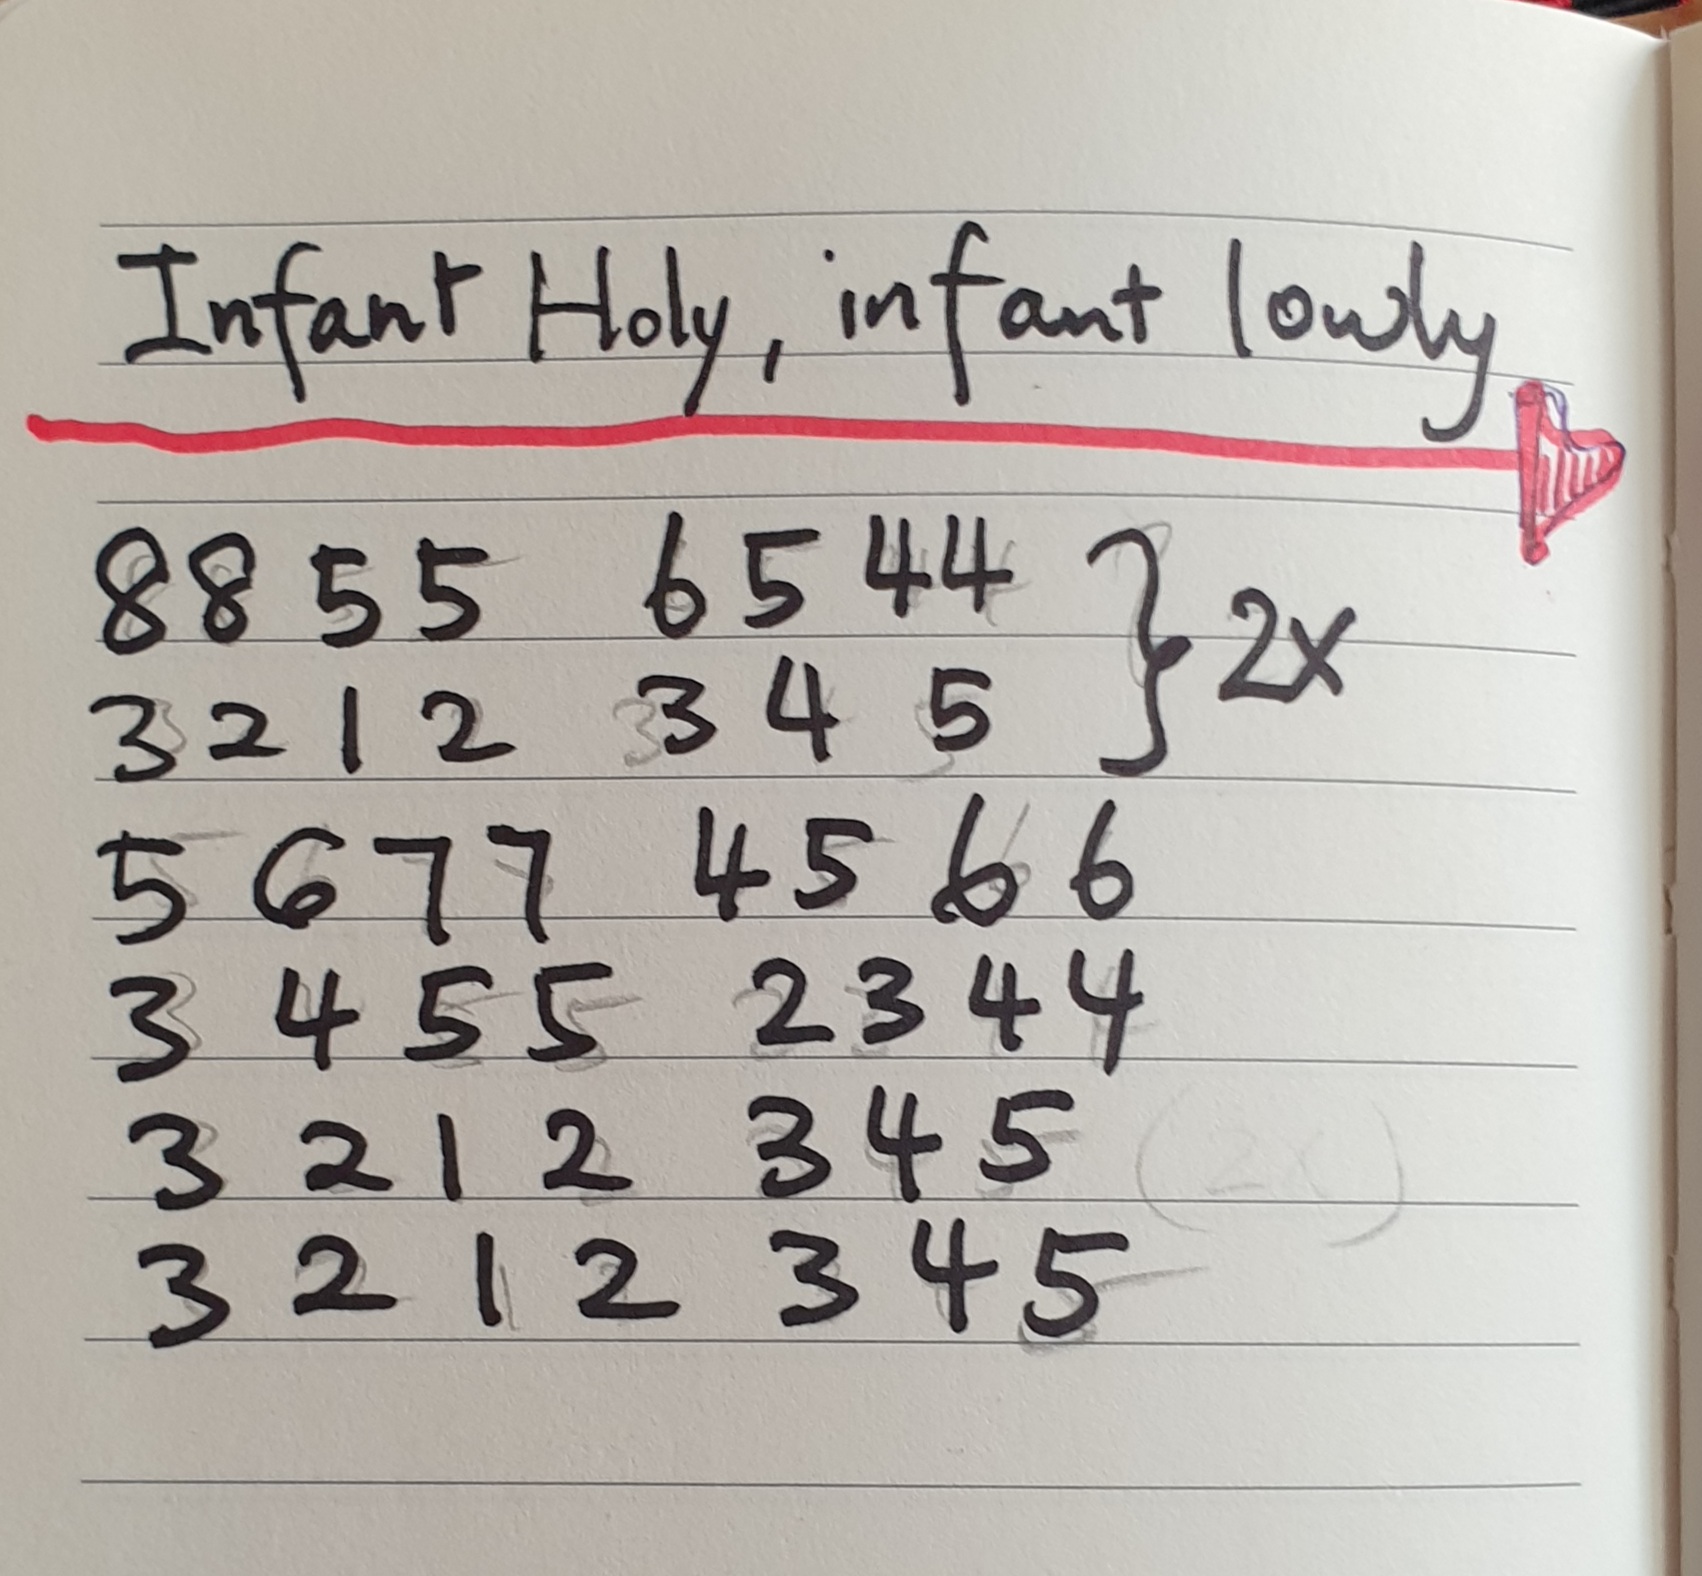 Infant Holy, infant lowly
8 8 5 5 6 5 4 4 } 2x
3 2 1 2 3 4 5
5 6 7 7 4 5 6 6
3 4 5 5 2 3 4 4
3 2 1 2 3 4 5 (2x)
3 2 1 2 3 4 5